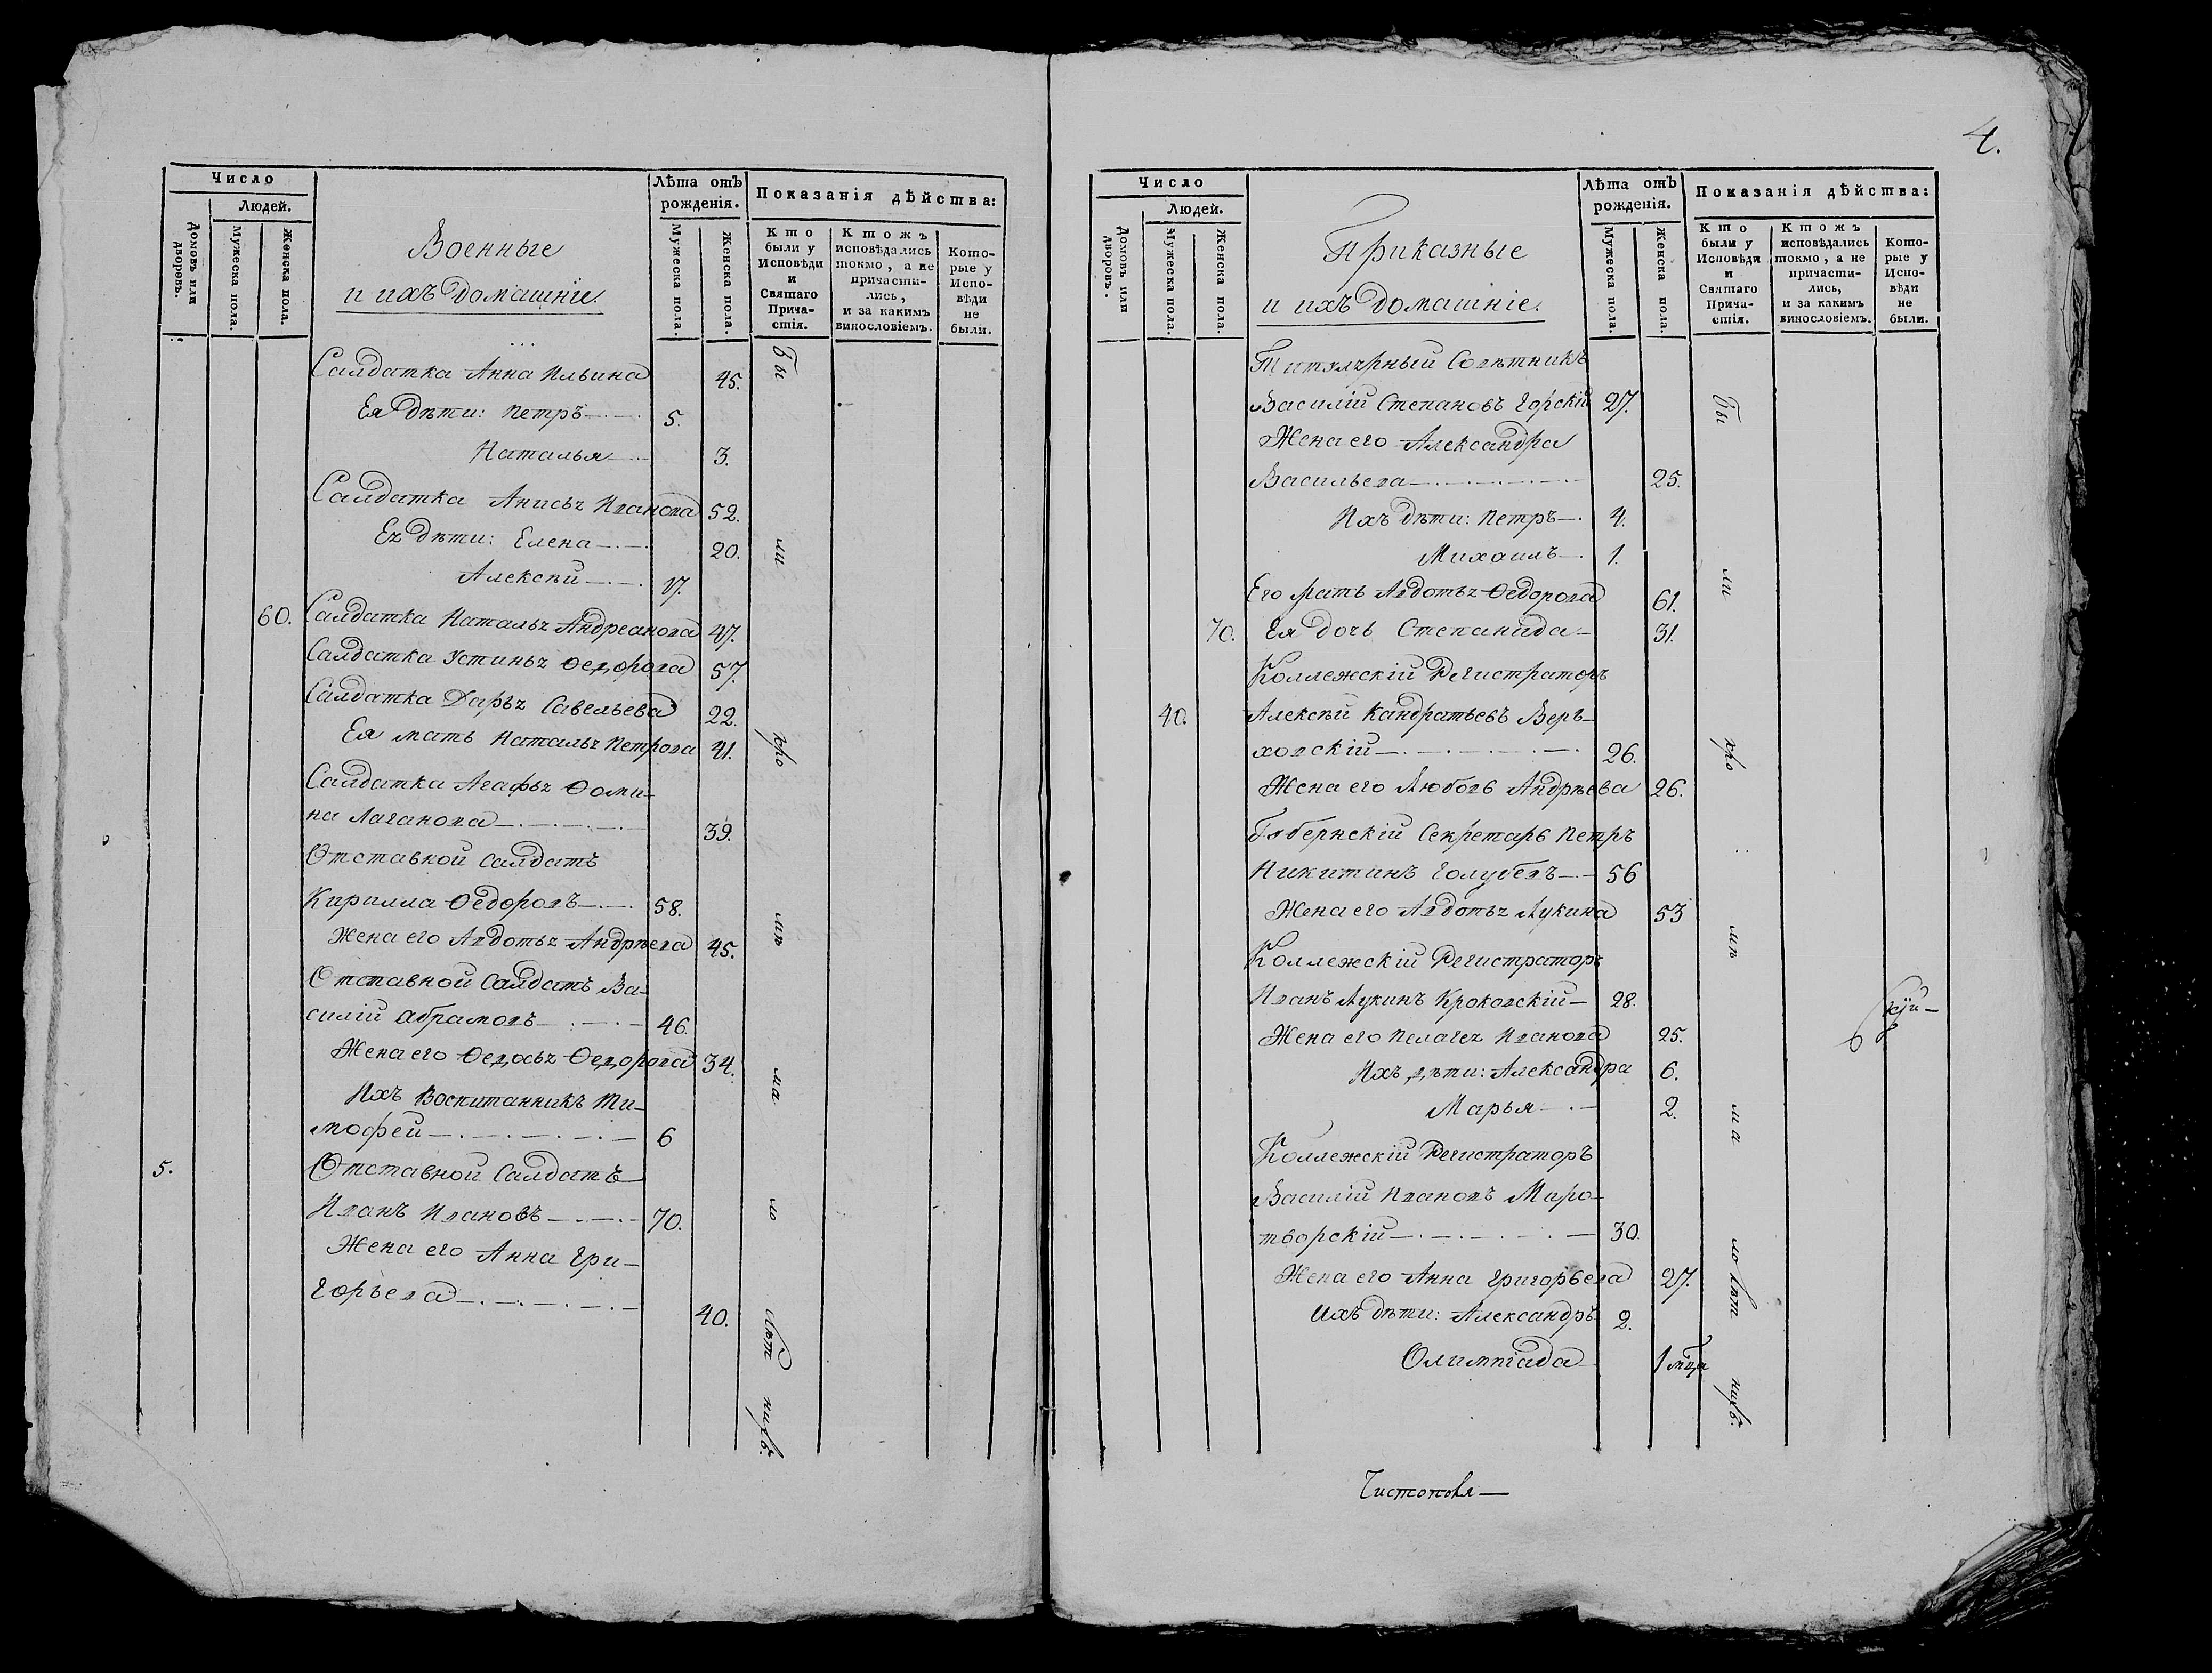 Число
Людей.
Домовъ или дворовъ.
Мужеска пола.
Женска пола.
Военные
и ихъ домашніе.
Лѣта отъ рожденія.
Мужеска пола.
Женска пола.
Показанія дѣйства:
Кто были у Исповѣди и Святаго Причастія.
Ктожъ исповѣдались токмо, а не причастились, и за какимъ винословіемъ.
Которые у Исповѣди не были.
Салдатка Анна Ильина 45.
Ея дѣти: Петръ 5.
Наталья 3.
Салдатка Анисья Иванова 52.
Ея дѣти: Елена 20.
Алексѣй 17.
60. Салдатка Наталья Андреанова 47.
Салдатка Устинья Ѳедорова 57.
Салдатка Дарья Савельева 22.
Ея мать Наталья Петрова 41.
Салдатка Агафья Ѳоми-
на Лаганова 39.
Отставной Салдатъ
Кирилла Ѳедоровъ 58.
Жена его Авдотья Андрѣева 45.
Отставной Салдатъ Ва-
силій Абрамовъ 46.
Жена его Ѳедосья Ѳедорова 34.
Ихъ Воспитанникъ Ти-
мофей 6
5. Отставной Салдатъ
Иванъ Ивановъ 70.
Жена его Анна Гри-
горьева 40.
Бы ли про мнѣ ма ло лѣт нихъ.
4.
Число
Людей.
Домовъ или дворовъ.
Мужеска пола.
Женска пола.
Приказные
и ихъ домашніе.
Лѣта отъ рожденія.
Мужеска пола.
Женска пола.
Показанія дѣйства:
Кто были у Исповѣди и Святаго Причастія.
Ктожъ исповѣдались токмо, а не причастились, и за какимъ винословіемъ.
Которые у Исповѣди не были.
Титулярный Совѣтникъ
Василій Степановъ Горскій 27.
Жена его Александра
Васильева 25.
Ихъ дѣти: Петръ 4.
Михаилъ 1.
Его мать Авдотья Ѳедорова 61.
70. Ея дочь Степанида 31.
Коллежскій Регистраторъ
40. Алексѣй Кандратьевъ Верь-
ховскій 26.
Жена его Любовь Андрѣева 26.
Губернскій Секретарь Петръ
Никитинъ Голубевъ 56
Жена его Авдотья Лукина 53
Коллежскій Регистраторъ
Иванъ Лукинъ Кроковскій 28.
Жена его Пелагея Иванова 25.
Ихъ дѣти: Александра 6.
Марья 2.
Коллежскій Регистраторъ
Василій Ивановъ Миро-
творскій 30.
Жена его Анна Григорьева 27.
Ихъ дѣти: Александръ 2.
Олимпіада 1 мца
Бы ли кро мѣ ма ло лѣт нихъ.
Чистополя